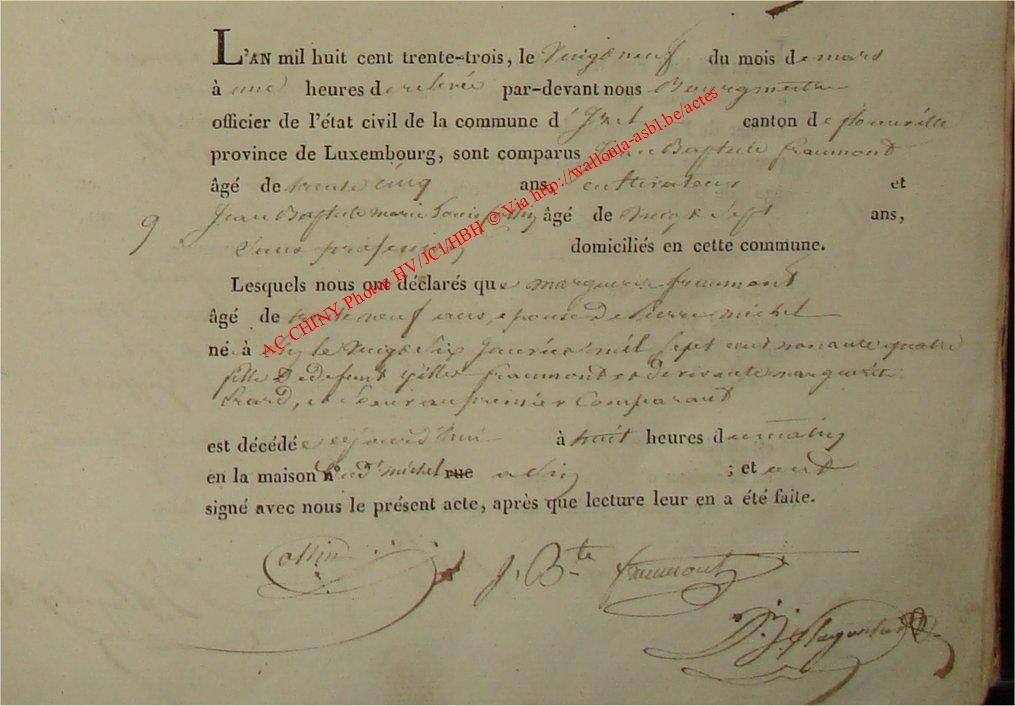 L'AN mil huit cent trente-trois, le Vingt neuf du mois de mars
à une heures de relevée par-devant nous Bourgmestre
officier de l'état civil de la commune d' canton de florenville
province de Luxembourg, sont comparus Jean Baptiste fraumont
âgé de trente cinq ans, cultivateur et
9 Jean Baptiste marie Louis âgé de Vingt Sept ans,
Sans profession domiciliés en cette commune.
Lesquels nous ont déclarés que marguerite fraumont
âgé de trente neuf ans, epouse de Pierre michel
née à le Vingt Six Janvier mil Sept cent nonante quatre
fille de defunt gilles fraumont et de vivante marguerite
et Sœur au premier Comparant
est décédée aujourd'hui à huit heures du matin
en la maison n° dudt michel rue ; et ont
signé avec nous le présent acte, après que lecture leur en a été faite.
Collin J. Bte fraumont
AC CHINY Photo HV/JCl/HBH © Via http://wallonia-asbl.be/actes